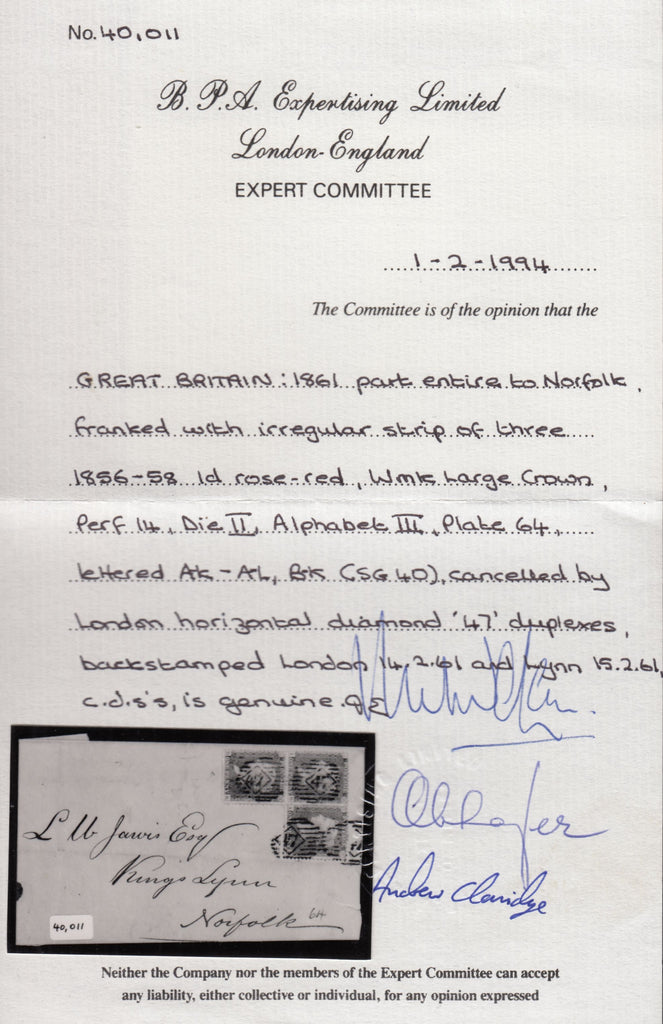 No. 40,011
B. P. A. Expertising Limited
London-England
EXPERT COMMITTEE
1-2-1994
The Committee is of the opinion that the
GREAT BRITAIN: 1861 part entire to Norfolk,
franked with irregular strip of three
1856-58 1d rose-red, Wmk Large Crown,
Perf 14, Die II, Alphabet III, Plate 64,
lettered AK-AL, BK (SG 40), cancelled by
London horizontal diamond '47' duplexes,
backstamped London 14.2.61 and Lynn 15.2.61,
c.d.s's, is genuine.
L W Jarvis Esq
Kings Lynn
Norfolk 64
40,011
Andrew Claridge
Neither the Company nor the members of the Expert Committee can accept
any liability, either collective or individual, for any opinion expressed